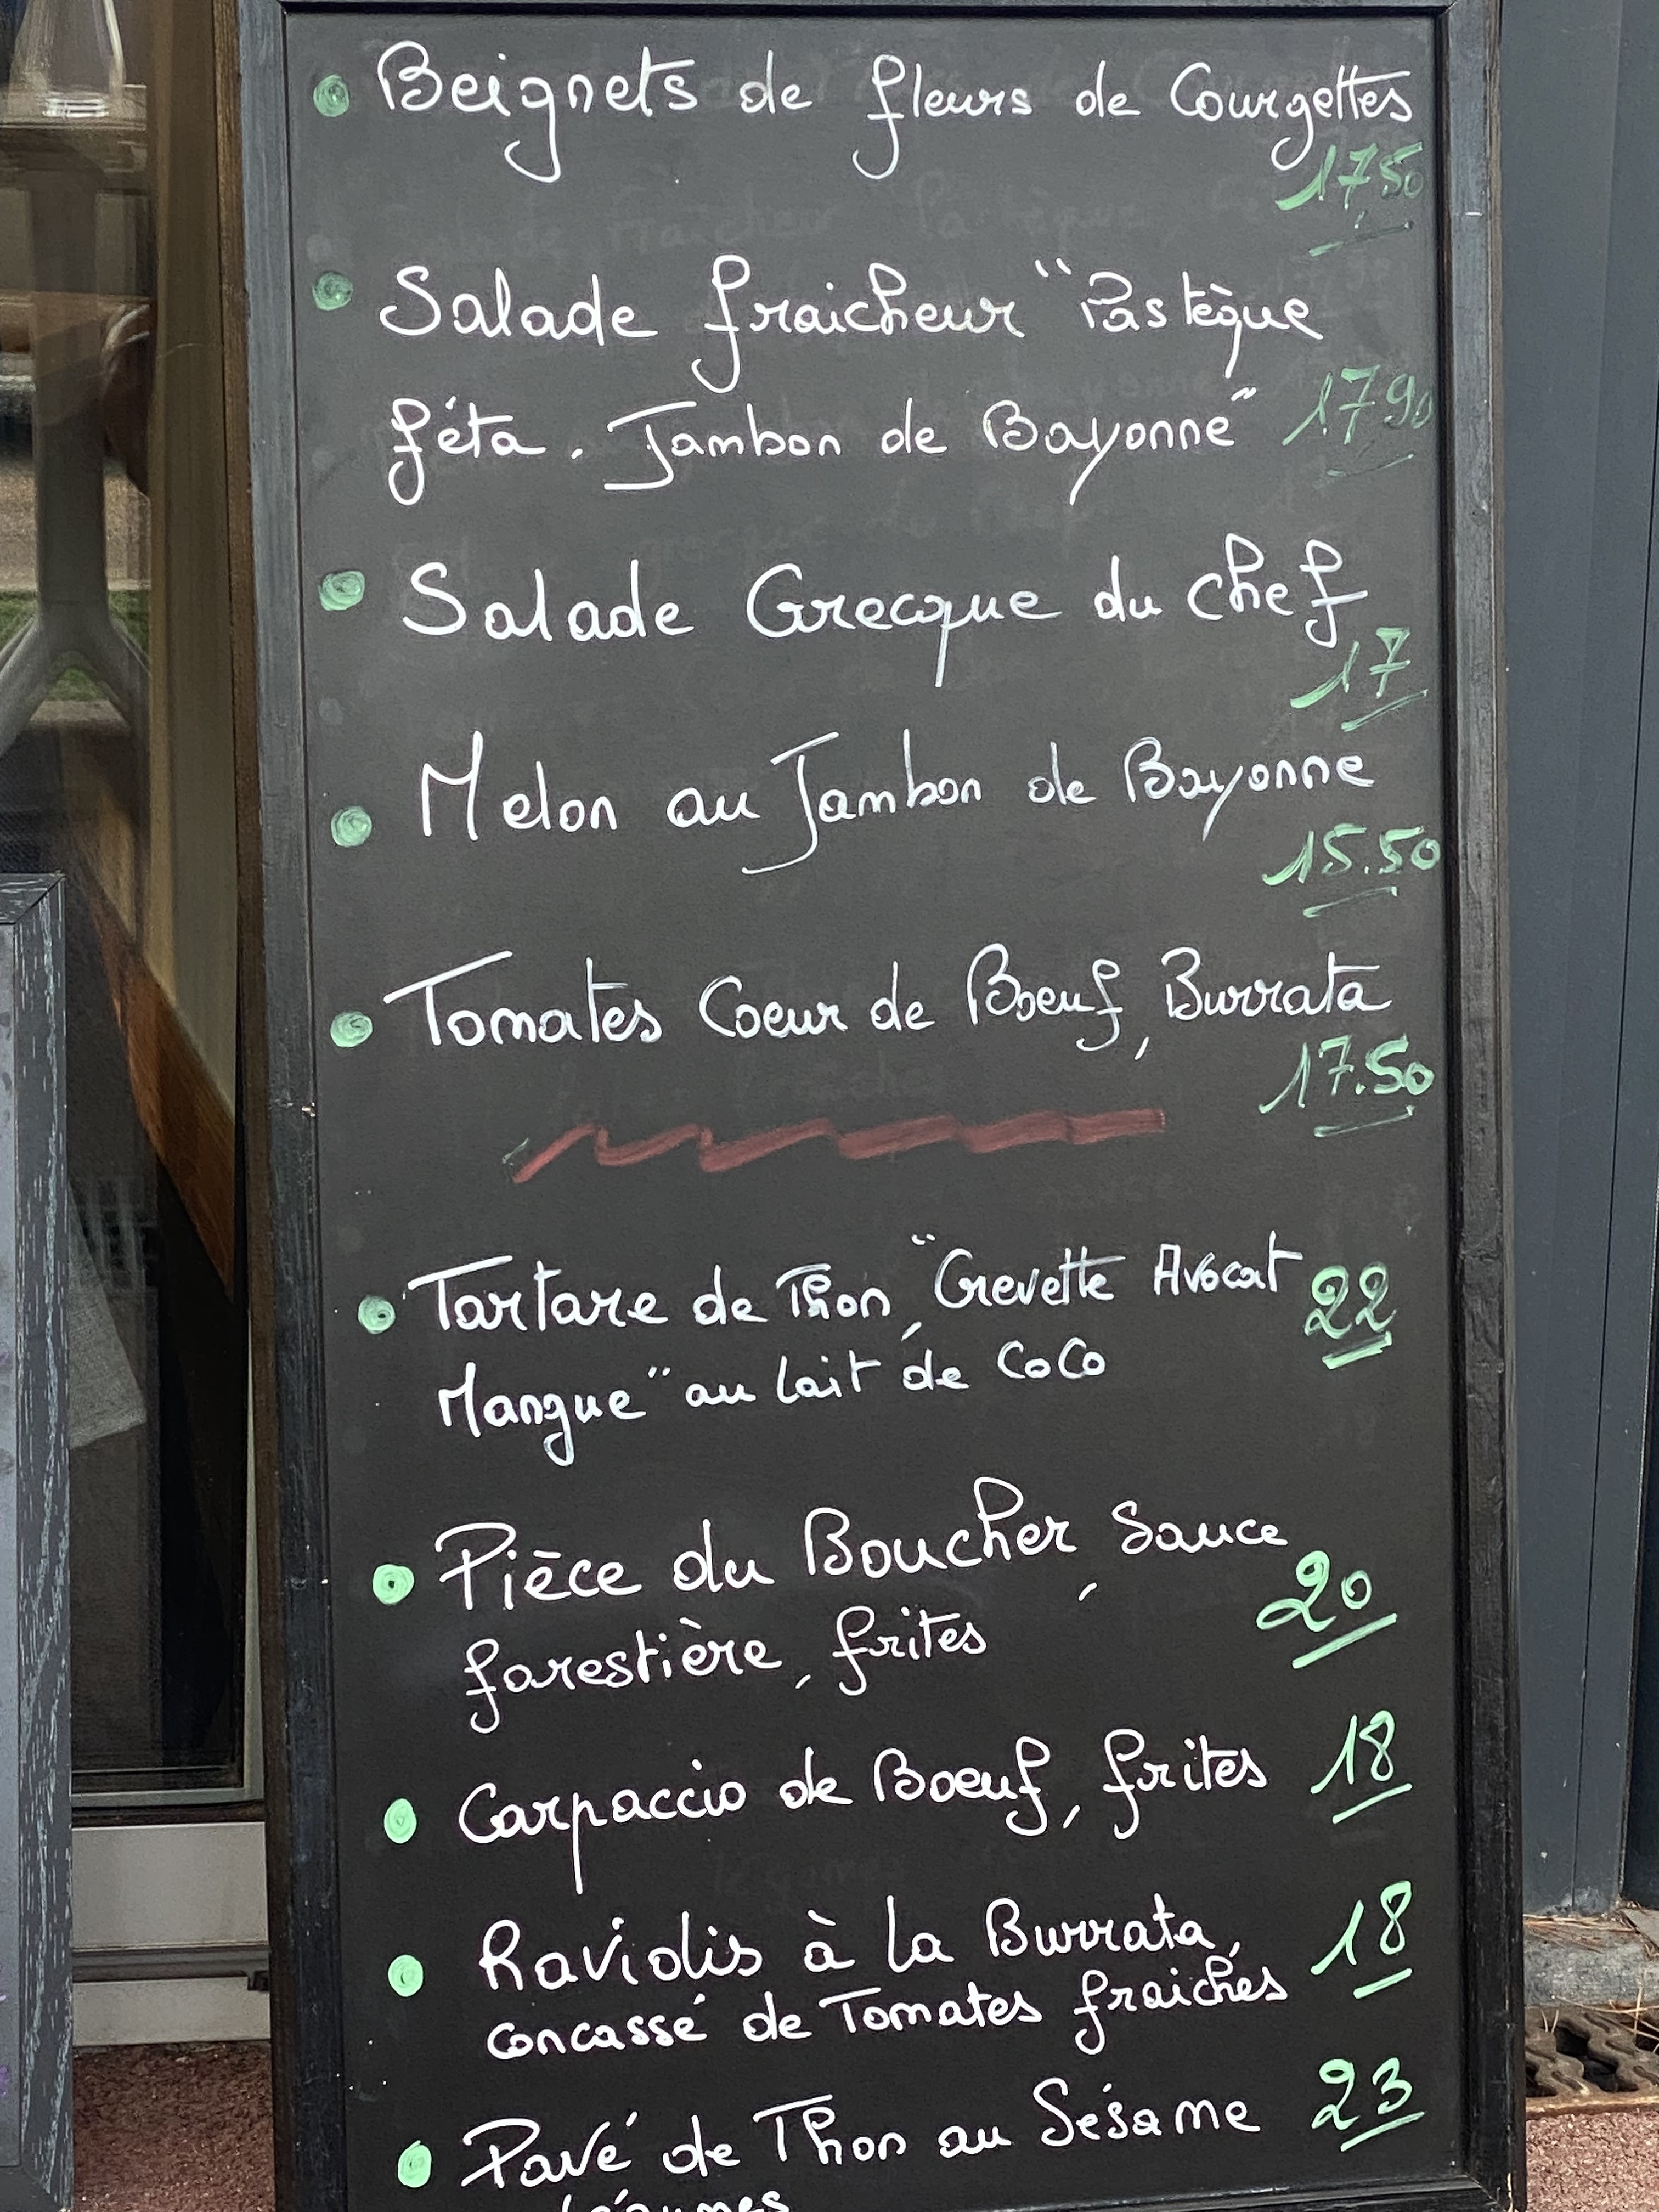 Beignets de fleurs de Courgettes
17.50
Salade fraicheur "Pastèque
féta, Jambon de Bayonne" 17.90
Salade Grecque du chef
17
Melon au Jambon de Bayonne
15.50
Tomates Coeur de Boeuf, Burrata
17.50
Tartare de Thon, "Crevette Avocat 22
Mangue" au lait de CoCo
Pièce du Boucher, Sauce
forestière, frites 20
Carpaccio de Boeuf, frites 18
Raviolis à la Burrata, 18
concassé de Tomates fraiches
Pavé de Thon au Sésame 23
Légumes